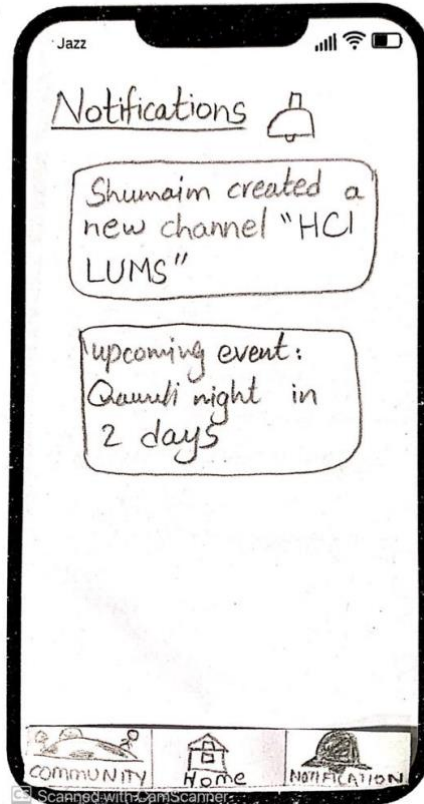 Jazz
Notifications
Shumaim created a
new channel "HCI
LUMS"
upcoming event:
Qawwali night in
2 days
COMMUNITY
Home
NOTIFICATION
CS Scanned with CamScanner